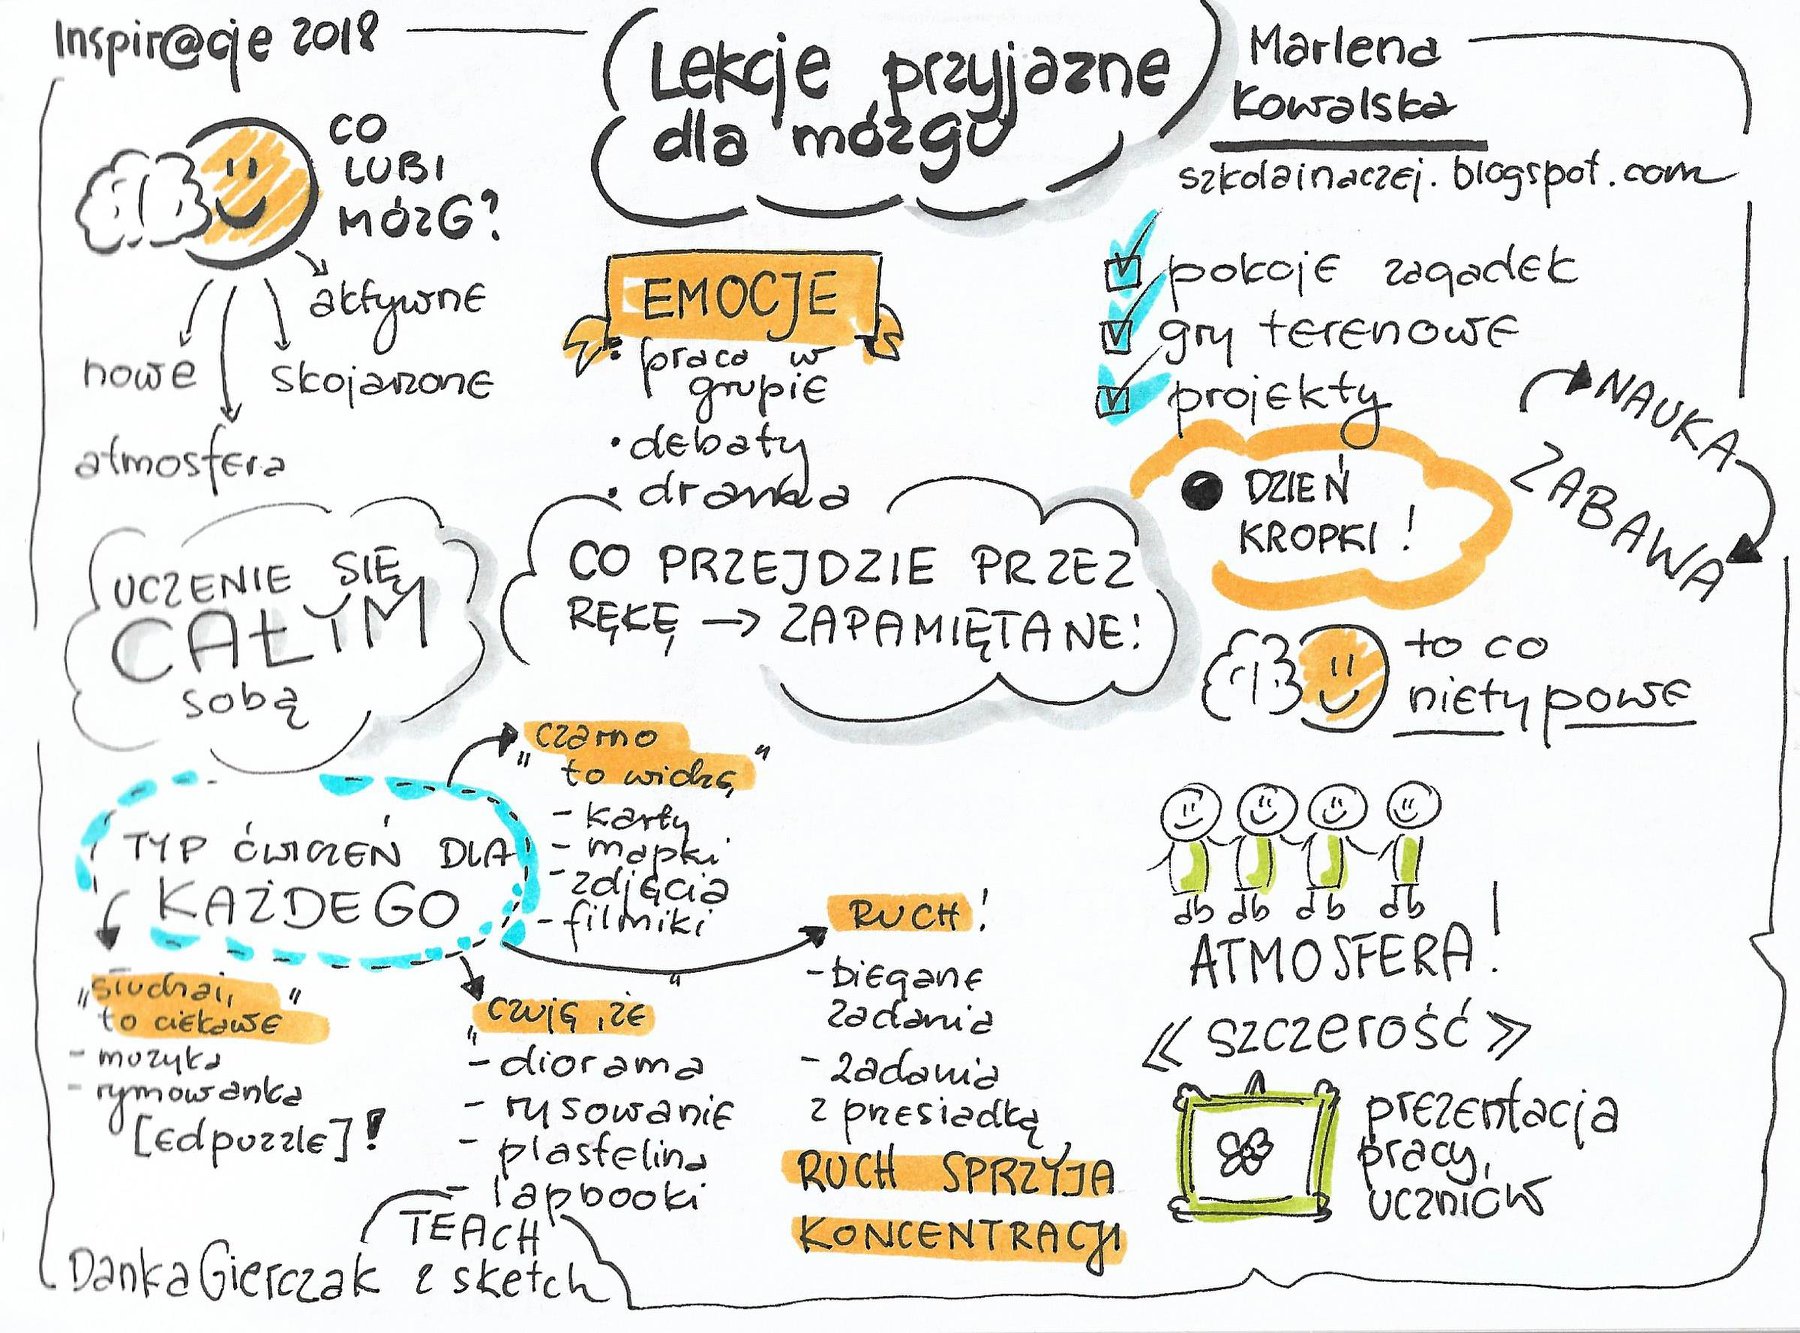 Inspir@cje 2018
Lekcje przyjazne
dla mózgu
Marlena
Kowalska
szkolainaczej.blogspot.com
CO
LUBI
MÓZG?
aktywne
skojarzone
atmosfera
nowe
EMOCJE
• praca w
grupie
• debaty
• drama
pokoje zagadek
gry terenowe
projekty
NAUKA
ZABAWA
DZIEŃ
KROPKI!
UCZENIE SIĘ
CAŁYM
sobą
CO PRZEJDZIE PRZEZ
RĘKĘ → ZAPAMIĘTANE!
to co
nietypowe
TYP ĆWICZEŃ DLA
KAŻDEGO
"czarno
to widzę"
- karty
- mapki
- zdjęcia
- filmiki
"słuchaj,
to ciekawe"
- muzyka
- rymowanka
[edpuzzle]!
"czuję, że"
- diorama
- rysowanie
- plastelina
- lapbooki
RUCH!
- biegane
zadania
- zadania
z przesiadką
RUCH SPRZYJA
KONCENTRACJI
ATMOSFERA!
« szczerość »
prezentacja
pracy
uczniów
Danka Gierczak
TEACH
2 sketch